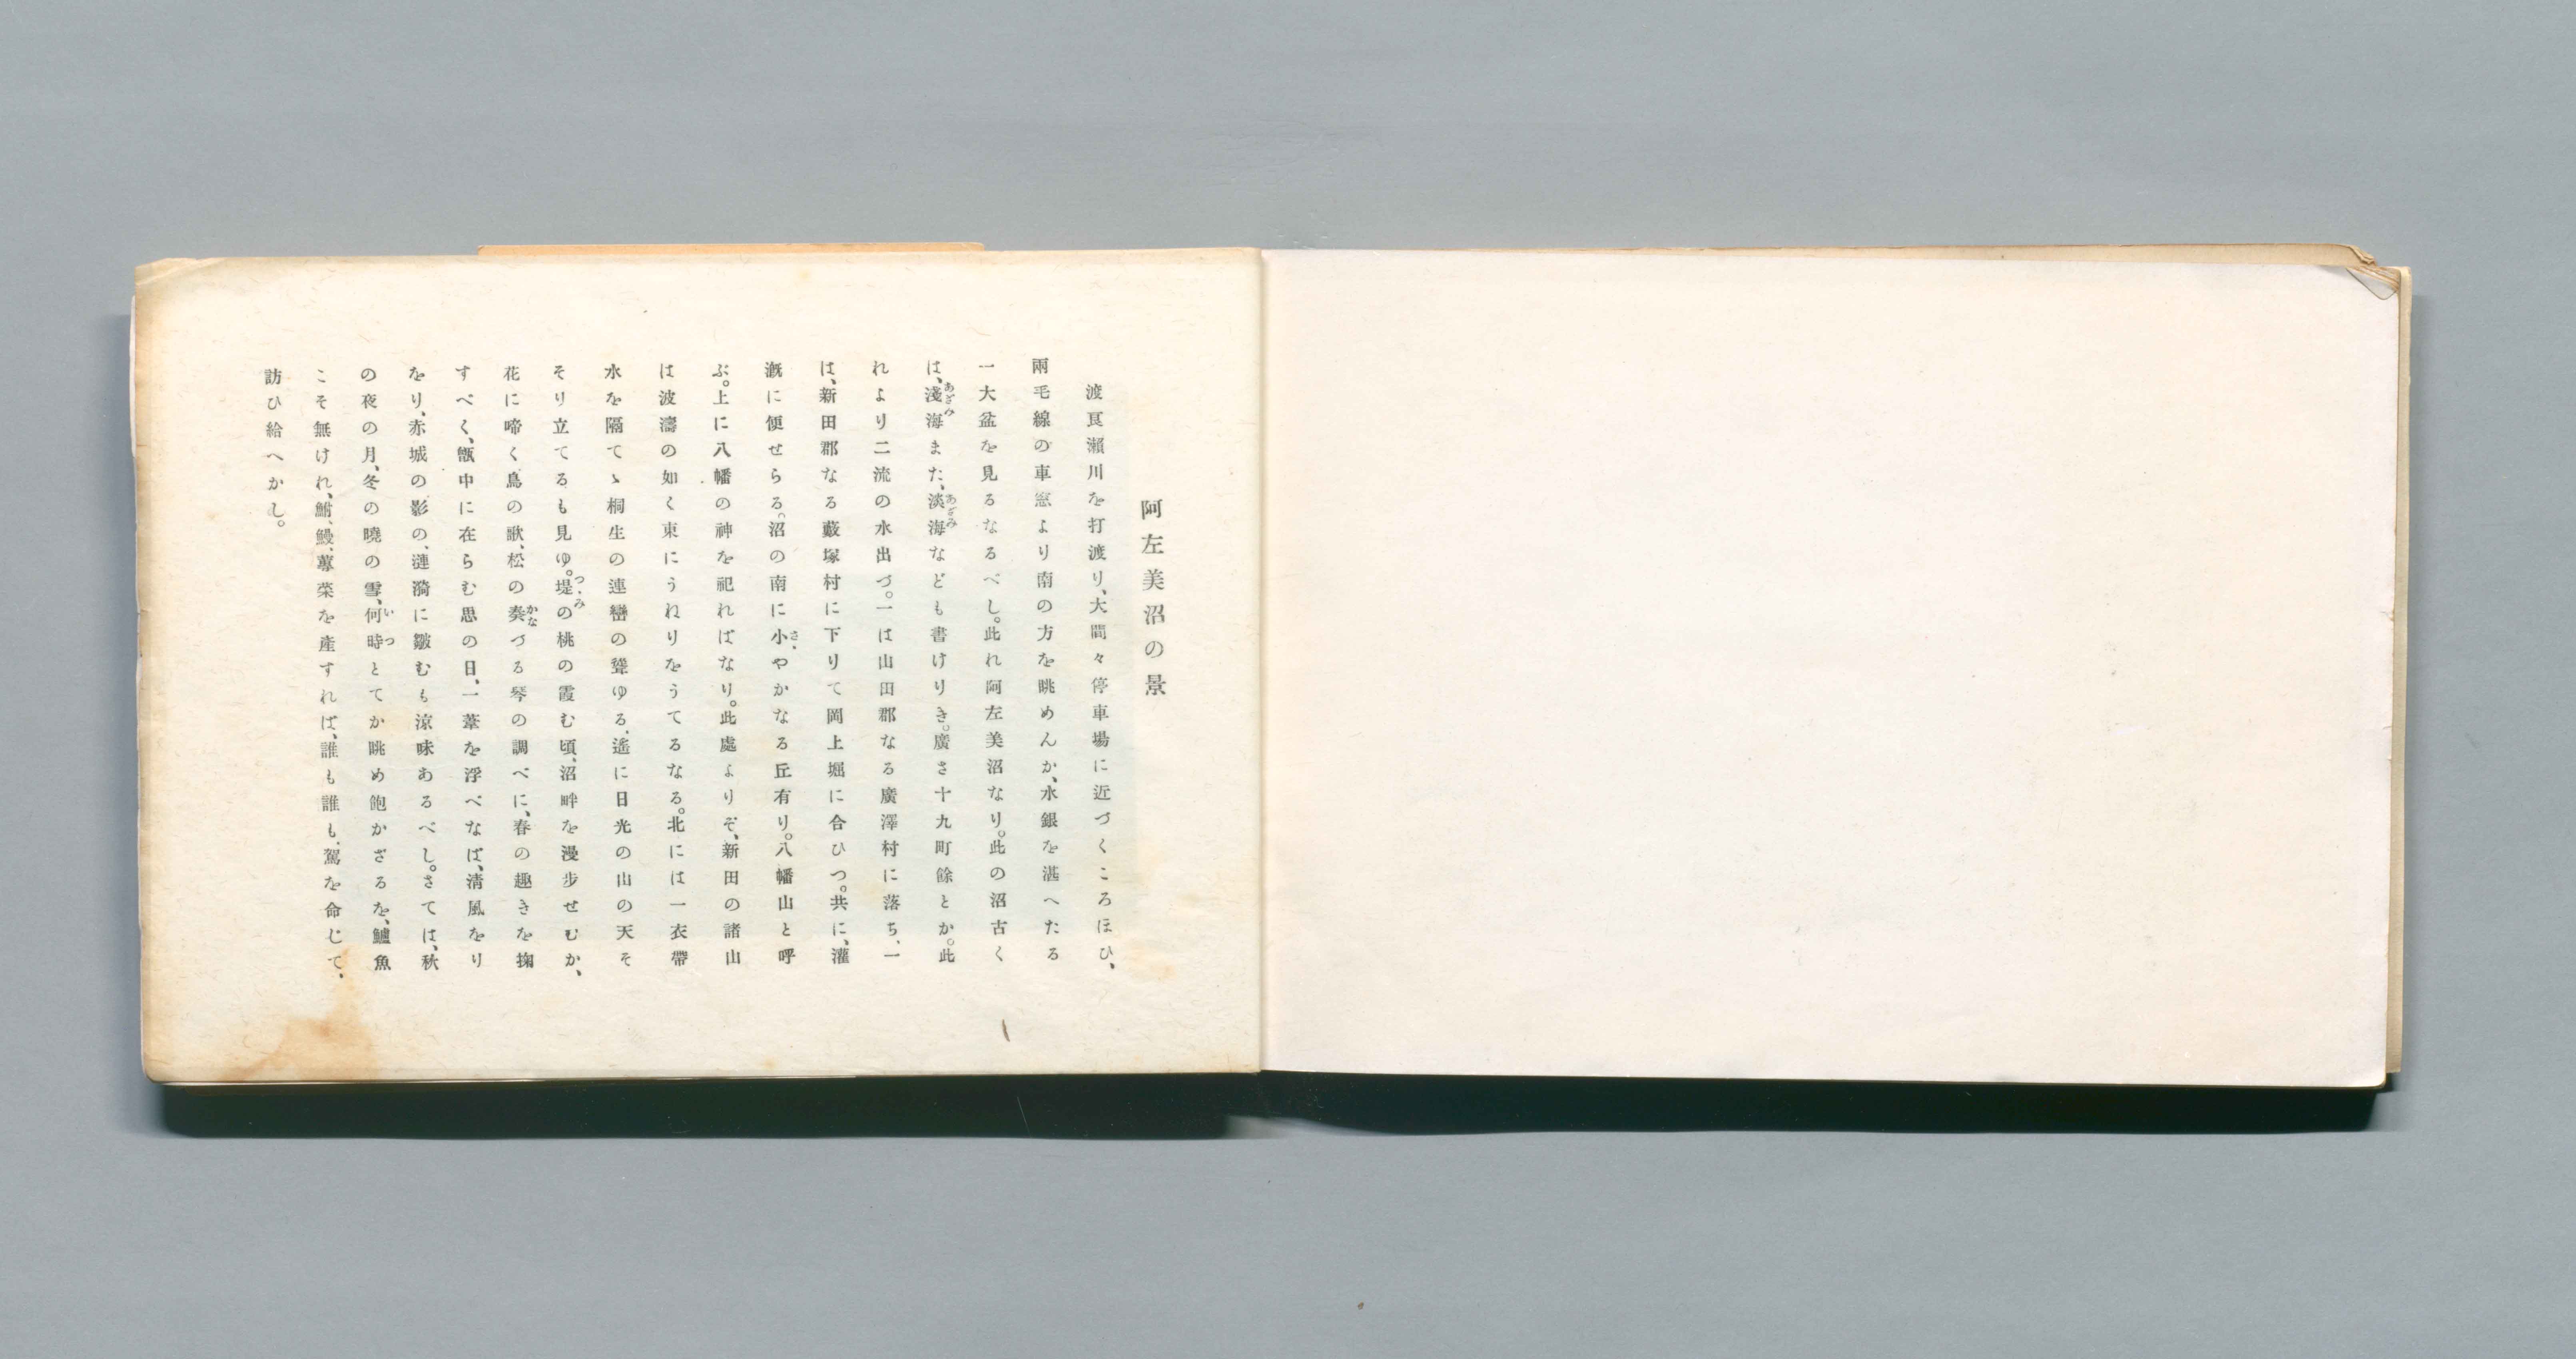 阿左美沼の景
渡良瀨川を打渡り、大間々停車場に近づくころほひ、
兩毛線の車窓より南の方を眺めんか、水銀を湛へたる
一大盆を見るなるべし。此れ阿左美沼なり。此の沼古く
は、淺海また、淡海なども書けりき。廣さ十九町餘とか。此
れより二流の水出づ。一は山田郡なる廣澤村に落ち、一
は、新田郡なる藪塚村に下りて岡上堀に合ひつ。共に、灌
漑に便せらる。沼の南に小やかなる丘有り。八幡山と呼
ぶ。上に八幡の神を祀ればなり。此處よりぞ、新田の諸山
は波濤の如く東にうねりをうてるなる。北には一衣帶
水を隔てゝ桐生の連巒の聳ゆる、遙に日光の山の天そ
そり立てるも見ゆ。堤の桃の霞む頃、沼畔を漫步せむか、
花に啼く鳥の歌、松の奏づる琴の調べに、春の趣きを掬
すべく、甑中に在らむ思の日、一葦を浮べなば、淸風をり
をり、赤城の影の、漣漪に皺むも涼味あるべし。さては、秋
の夜の月、冬の曉の雪、何時とてか眺め飽かざるを、鱸魚
こそ無けれ、鮒、鰻、蓴菜を產すれば、誰も誰も、駕を命じて、
訪ひ給へかし。